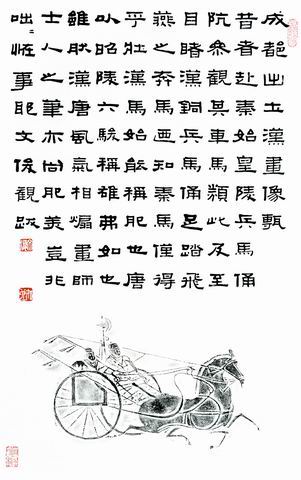 成都出土漢畫像甎
昔者赴秦始皇陵兵馬俑
阬參觀其車馬類此及至
目睹漢銅兵馬俑足踏飛
燕之奔馬迺知秦馬僅得
乎壯漢馬始能稱肥也唐
以昭陵六駿稱雄弗如也
雖肰漢唐風氣相煽畫師
士人之筆亦尚肥美豈非
咄〻恠事耶文俊觀跋